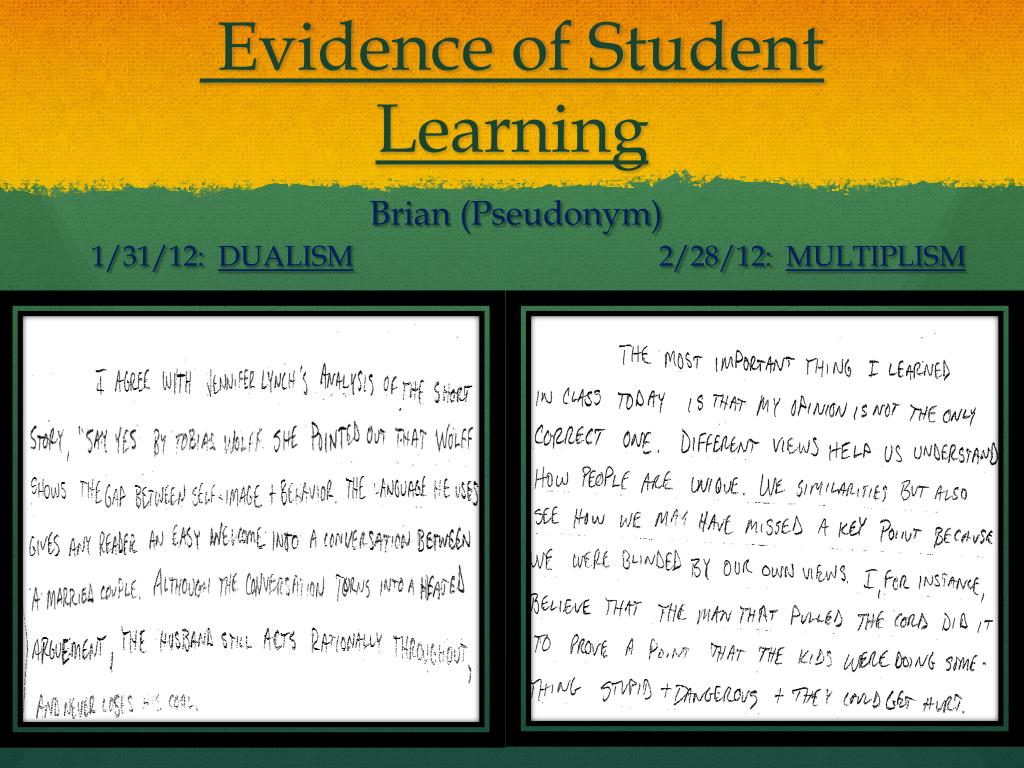 Evidence of Student
Learning
Brian (Pseudonym)
1/31/12: DUALISM
2/28/12: MULTIPLISM
I AGREE WITH JENNIFER LYNCH'S ANALYSIS OF THE SHORT
STORY, "SAY YES BY TOBIAS WOLFF. SHE POINTED OUT THAT WOLFF
SHOWS THE GAP BETWEEN SELF-IMAGE + BEHAVIOR. THE LANGUAGE HE USES
GIVES ANY READER AN EASY WELCOME INTO A CONVERSATION BETWEEN
A MARRIED COUPLE. ALTHOUGH THE CONVERSATION TURNS INTO A HEATED
ARGUEMENT, THE HUSBAND STILL ACTS RATIONALLY THROUGHOUT,
AND NEVER LOSES HIS COOL.
THE MOST IMPORTANT THING I LEARNED
IN CLASS TODAY IS THAT MY OPINION IS NOT THE ONLY
CORRECT ONE. DIFFERENT VIEWS HELP US UNDERSTAND
HOW PEOPLE ARE UNIQUE. WE SIMILARITIES BUT ALSO
SEE HOW WE MAY HAVE MISSED A KEY POINT BECAUSE
WE WERE BLINDED BY OUR OWN VIEWS. I, FOR INSTANCE,
BELIEVE THAT THE MAN THAT PULLED THE CORD DID IT
TO PROVE A POINT THAT THE KIDS WERE DOING SOME-
THING STUPID + DANGEROUS + THEY COULD GET HURT.